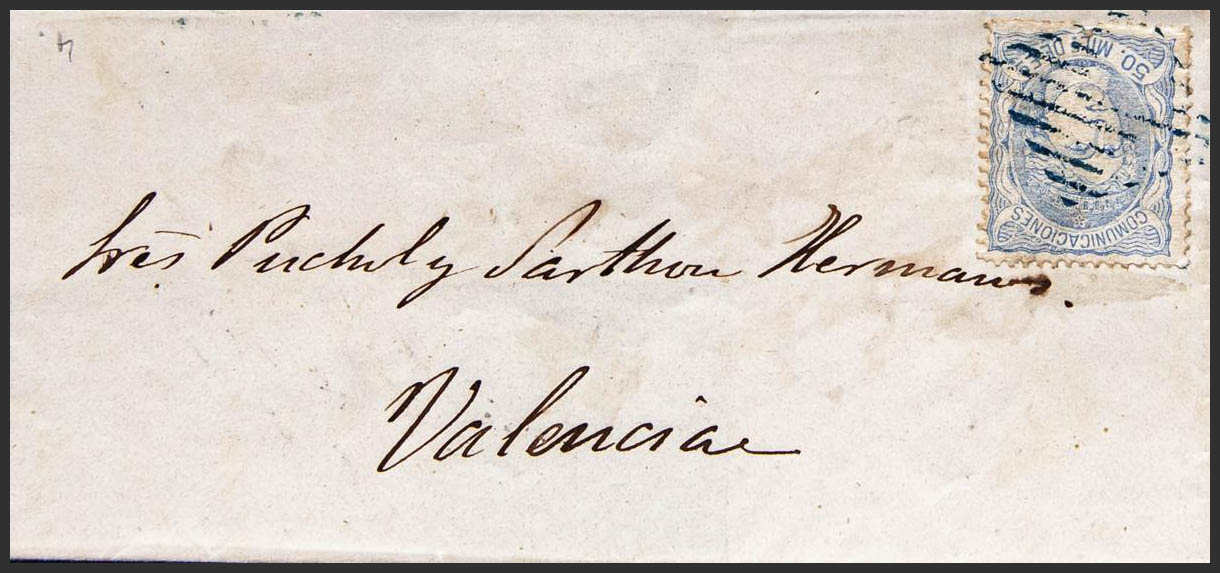 4
50. MILS DE
COMUNICACIONES
Sres Puchol y Sarthou Hermanos.
Valencia